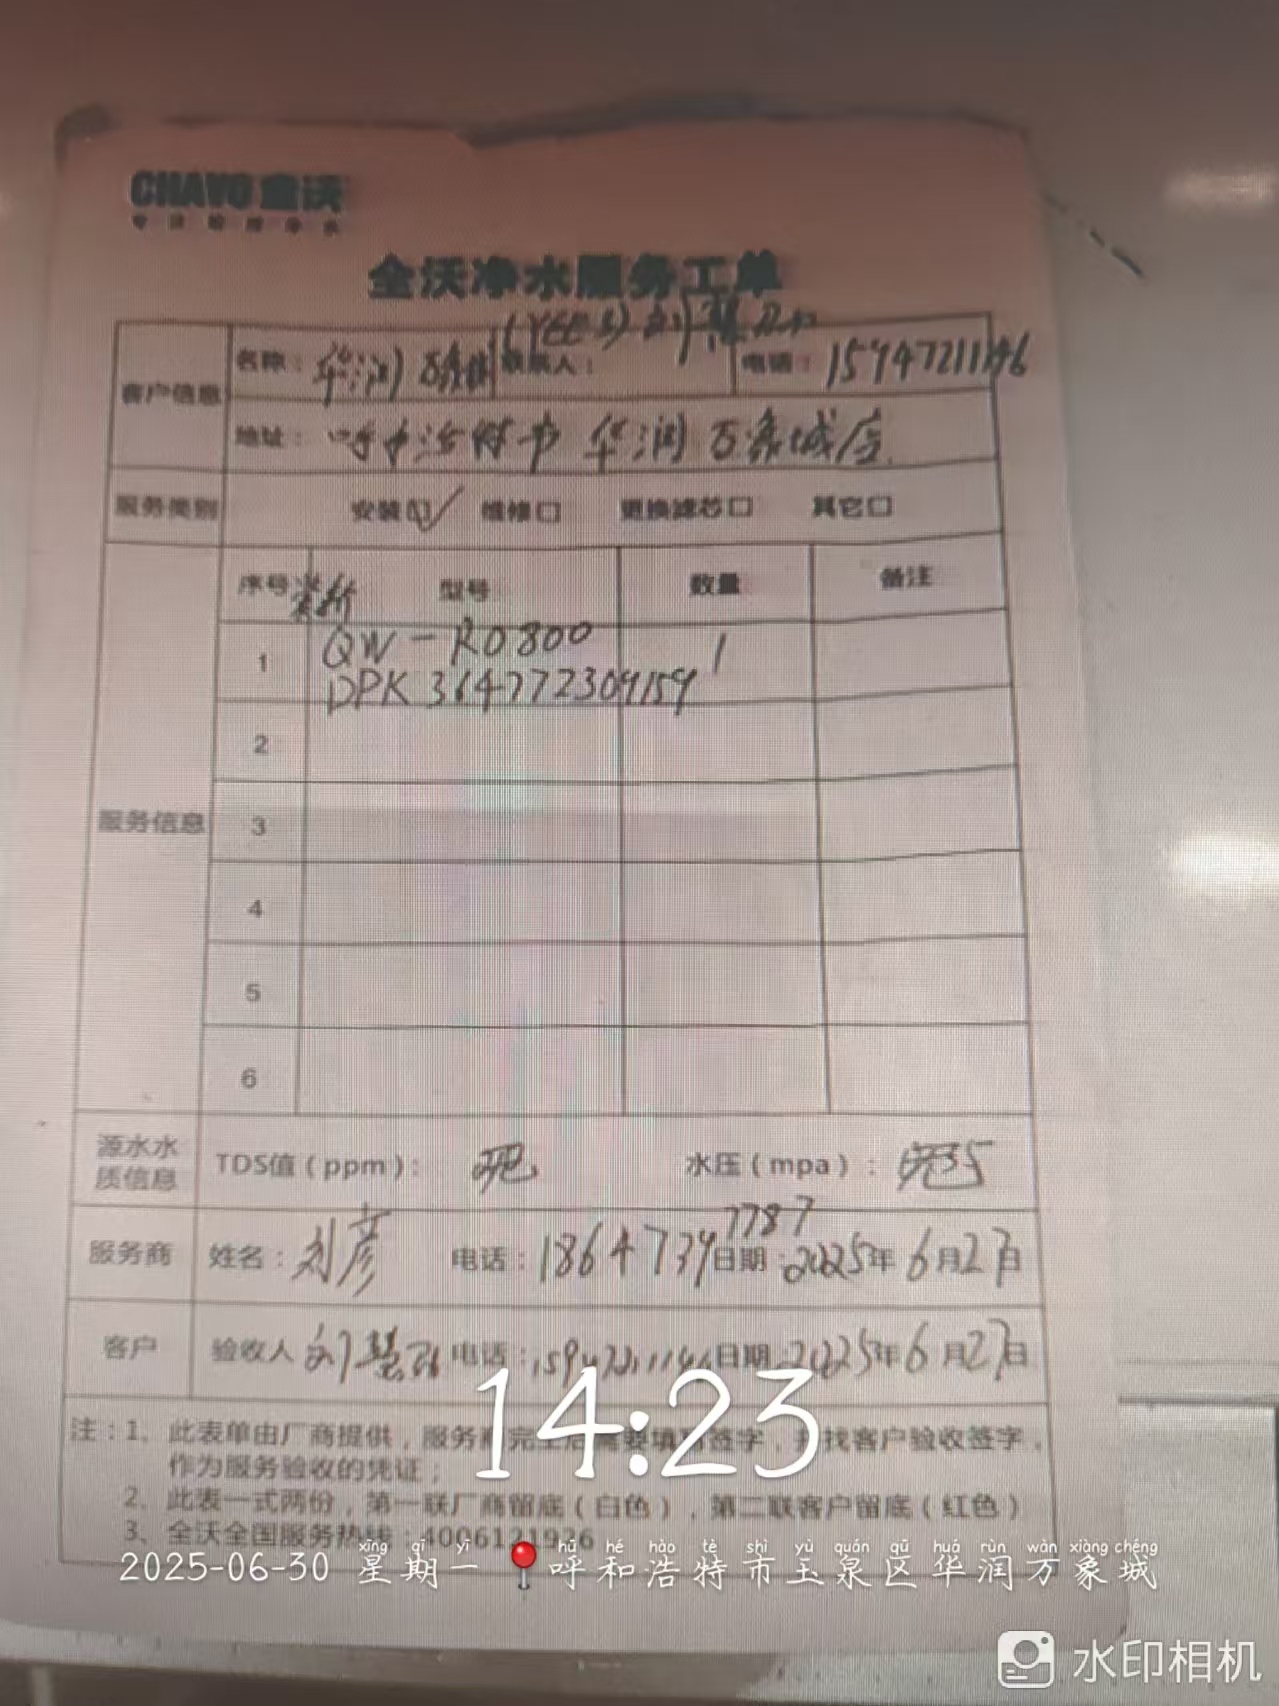 CHAVO 全沃
全沃净水服务工单
客户信息
名称：华润万象城 联系人： 电话：15947211146
地址：呼市 华润万象城店
服务类别 安装☑ 维修□ 更换滤芯□ 其它□
服务信息
序号 型号 数量 备注
1 QW-RO800 1
DPK364772309159
2
3
4
5
6
源水水质信息 TDS值（ppm）： 水压（mpa）：
服务商 姓名：刘彦 电话：18647397787 日期：2025年6月27日
客户 验收人 电话：15947211146 日期：2025年6月27日
14:23
注：1、此表单由厂商提供，服务商完工后需要填写签字，并找客户验收签字，
作为服务验收的凭证；
2、此表一式两份，第一联厂商留底（白色），第二联客户留底（红色）
3、全沃全国服务热线：4006121926
xīng qī yī hū hé hào tè shì yù quán qū huá rùn wàn xiàng chéng
2025-06-30 星期一 呼和浩特市玉泉区华润万象城
水印相机